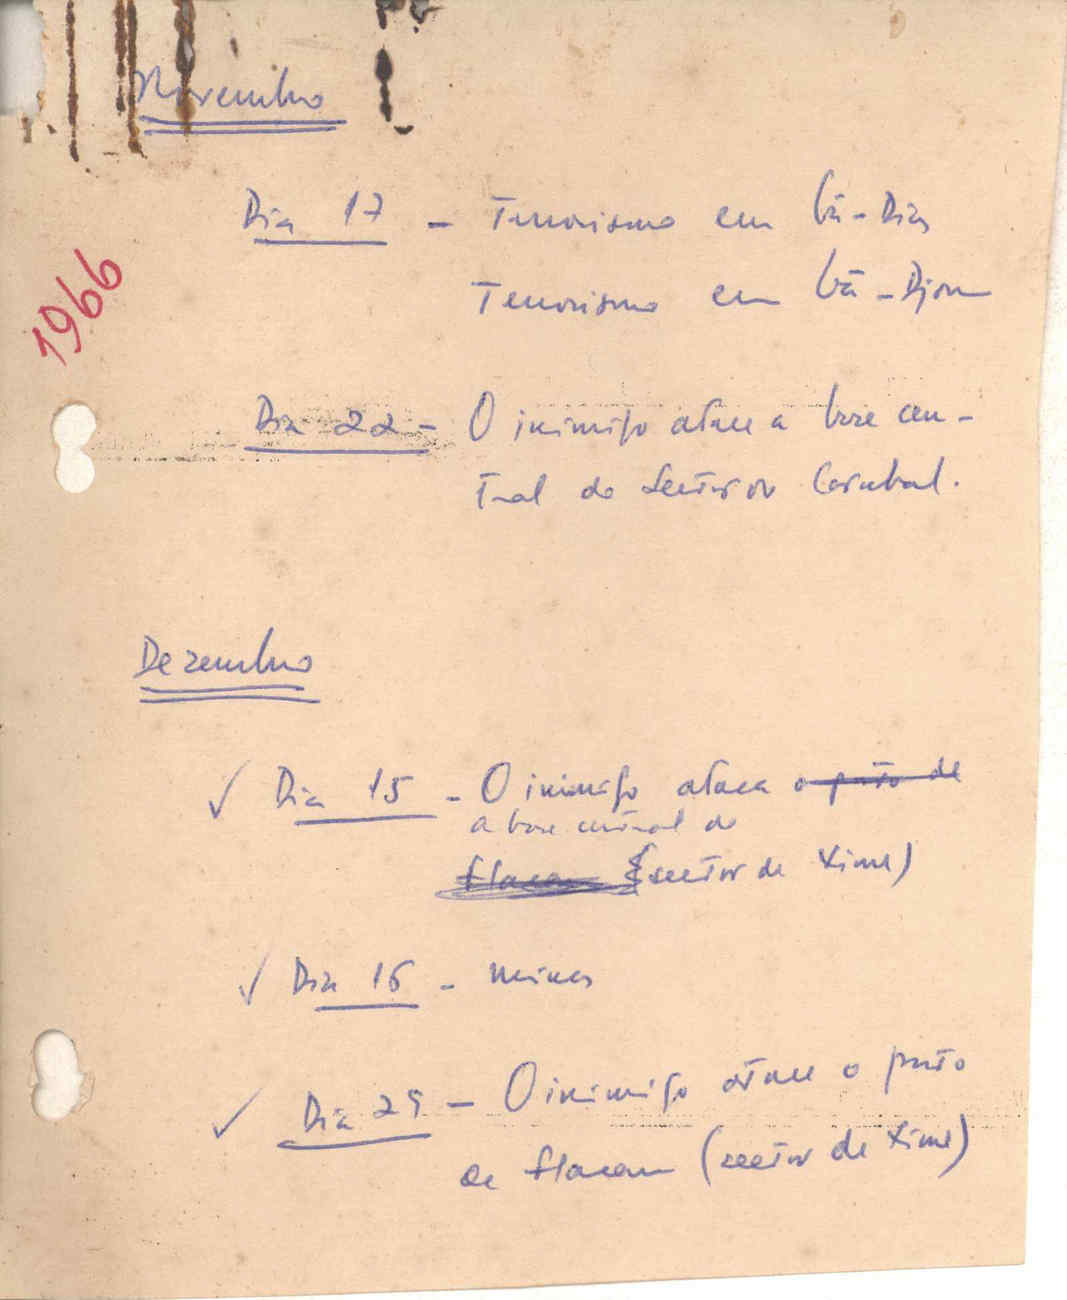 Novembro
1966
Dia 17 - Terrorismo em Gã-Dia
Terrorismo em Gã-Djom
Dia 22 - O inimigo ataca a base cen-
tral do sector Corubal.
Dezembro
✓ Dia 15 - O inimigo ataca o porto de
a base central do
Flacam (sector de Xime)
✓ Dia 16 - minas
✓ Dia 29 - O inimigo ataca o porto
de Flacam (sector de Xime)